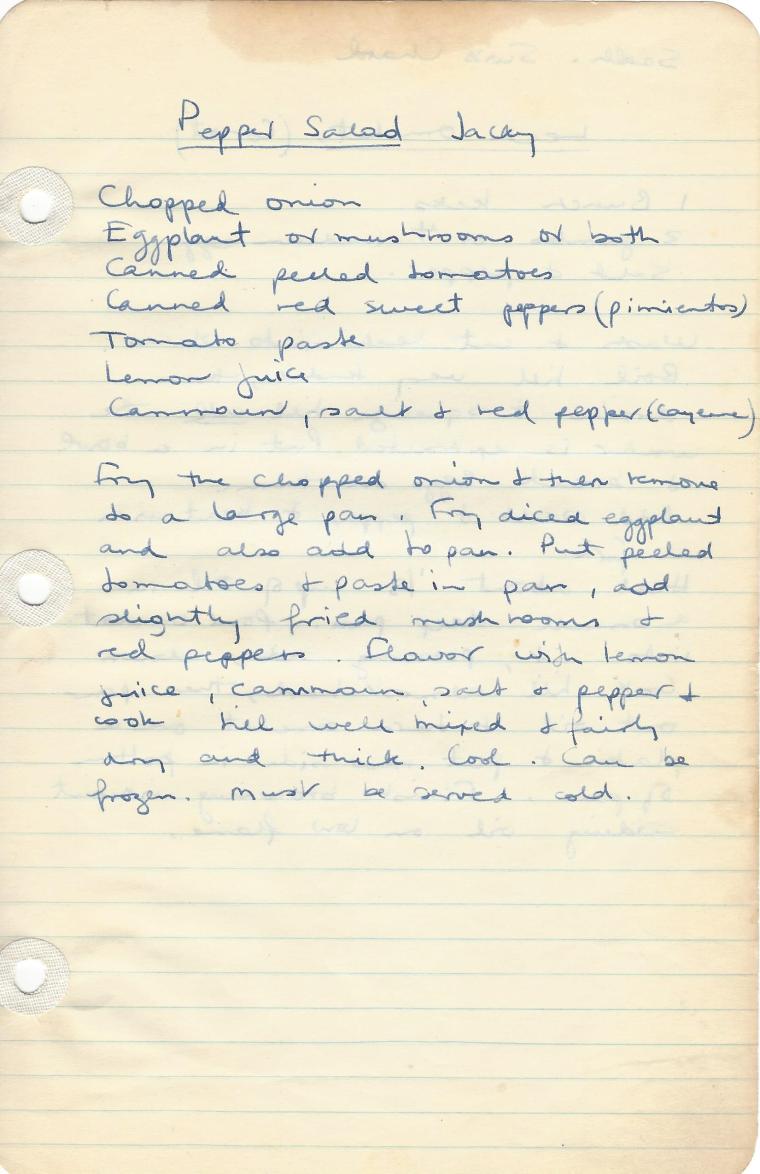 Pepper Salad Jacky
Chopped onion
Eggplant or mushrooms or both
Canned peeled tomatoes
Canned red sweet peppers (pimientos)
Tomato paste
Lemon juice
Cammoun, salt & red pepper (cayenne)
Fry the chopped onion & then remove
to a large pan. Fry diced eggplant
and also add to pan. Put peeled
tomatoes & paste in pan, add
slightly fried mushrooms &
red peppers. Flavor with lemon
juice, cammoun, salt & pepper &
cook till well mixed & fairly
dry and thick. Cool. Can be
frozen. Must be served cold.